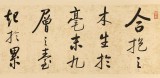 合抱之
木生於
毫末九
層之臺
起於累